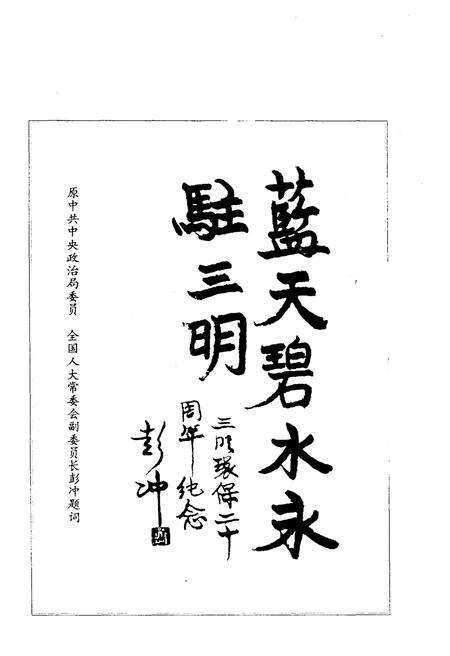 藍天碧水永
駐三明
三明環保二十
周年纪念
彭冲
原中共中央政治局委员 全国人大常委会副委员长彭冲题词